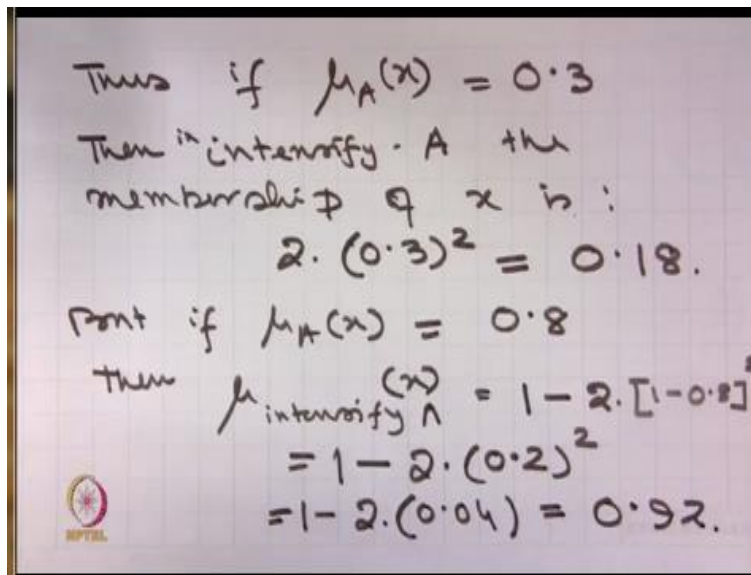 Thus if μ_A(x) = 0.3
Then in intensify. A the
membership of x is:
2. (0.3)² = 0.18.
But if μ_A(x) = 0.8
then μ_intensify A (x) = 1 - 2. [1-0.8]²
= 1 - 2. (0.2)²
= 1 - 2. (0.04) = 0.92.
NPTEL